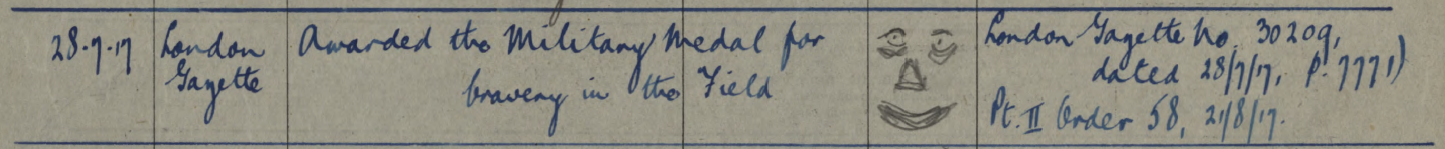 28-7-17
London
Gazette
Awarded the Military Medal for
bravery in the Field
London Gazette No. 30209,
dated 28/7/17, P. 7771)
Pt. II Order 58, 21/8/17.